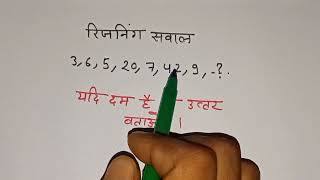 रिजनिंग सवाल
3, 6, 5, 20, 7, 42, 9, -?.
यदि दम है उत्तर
बताओ ।